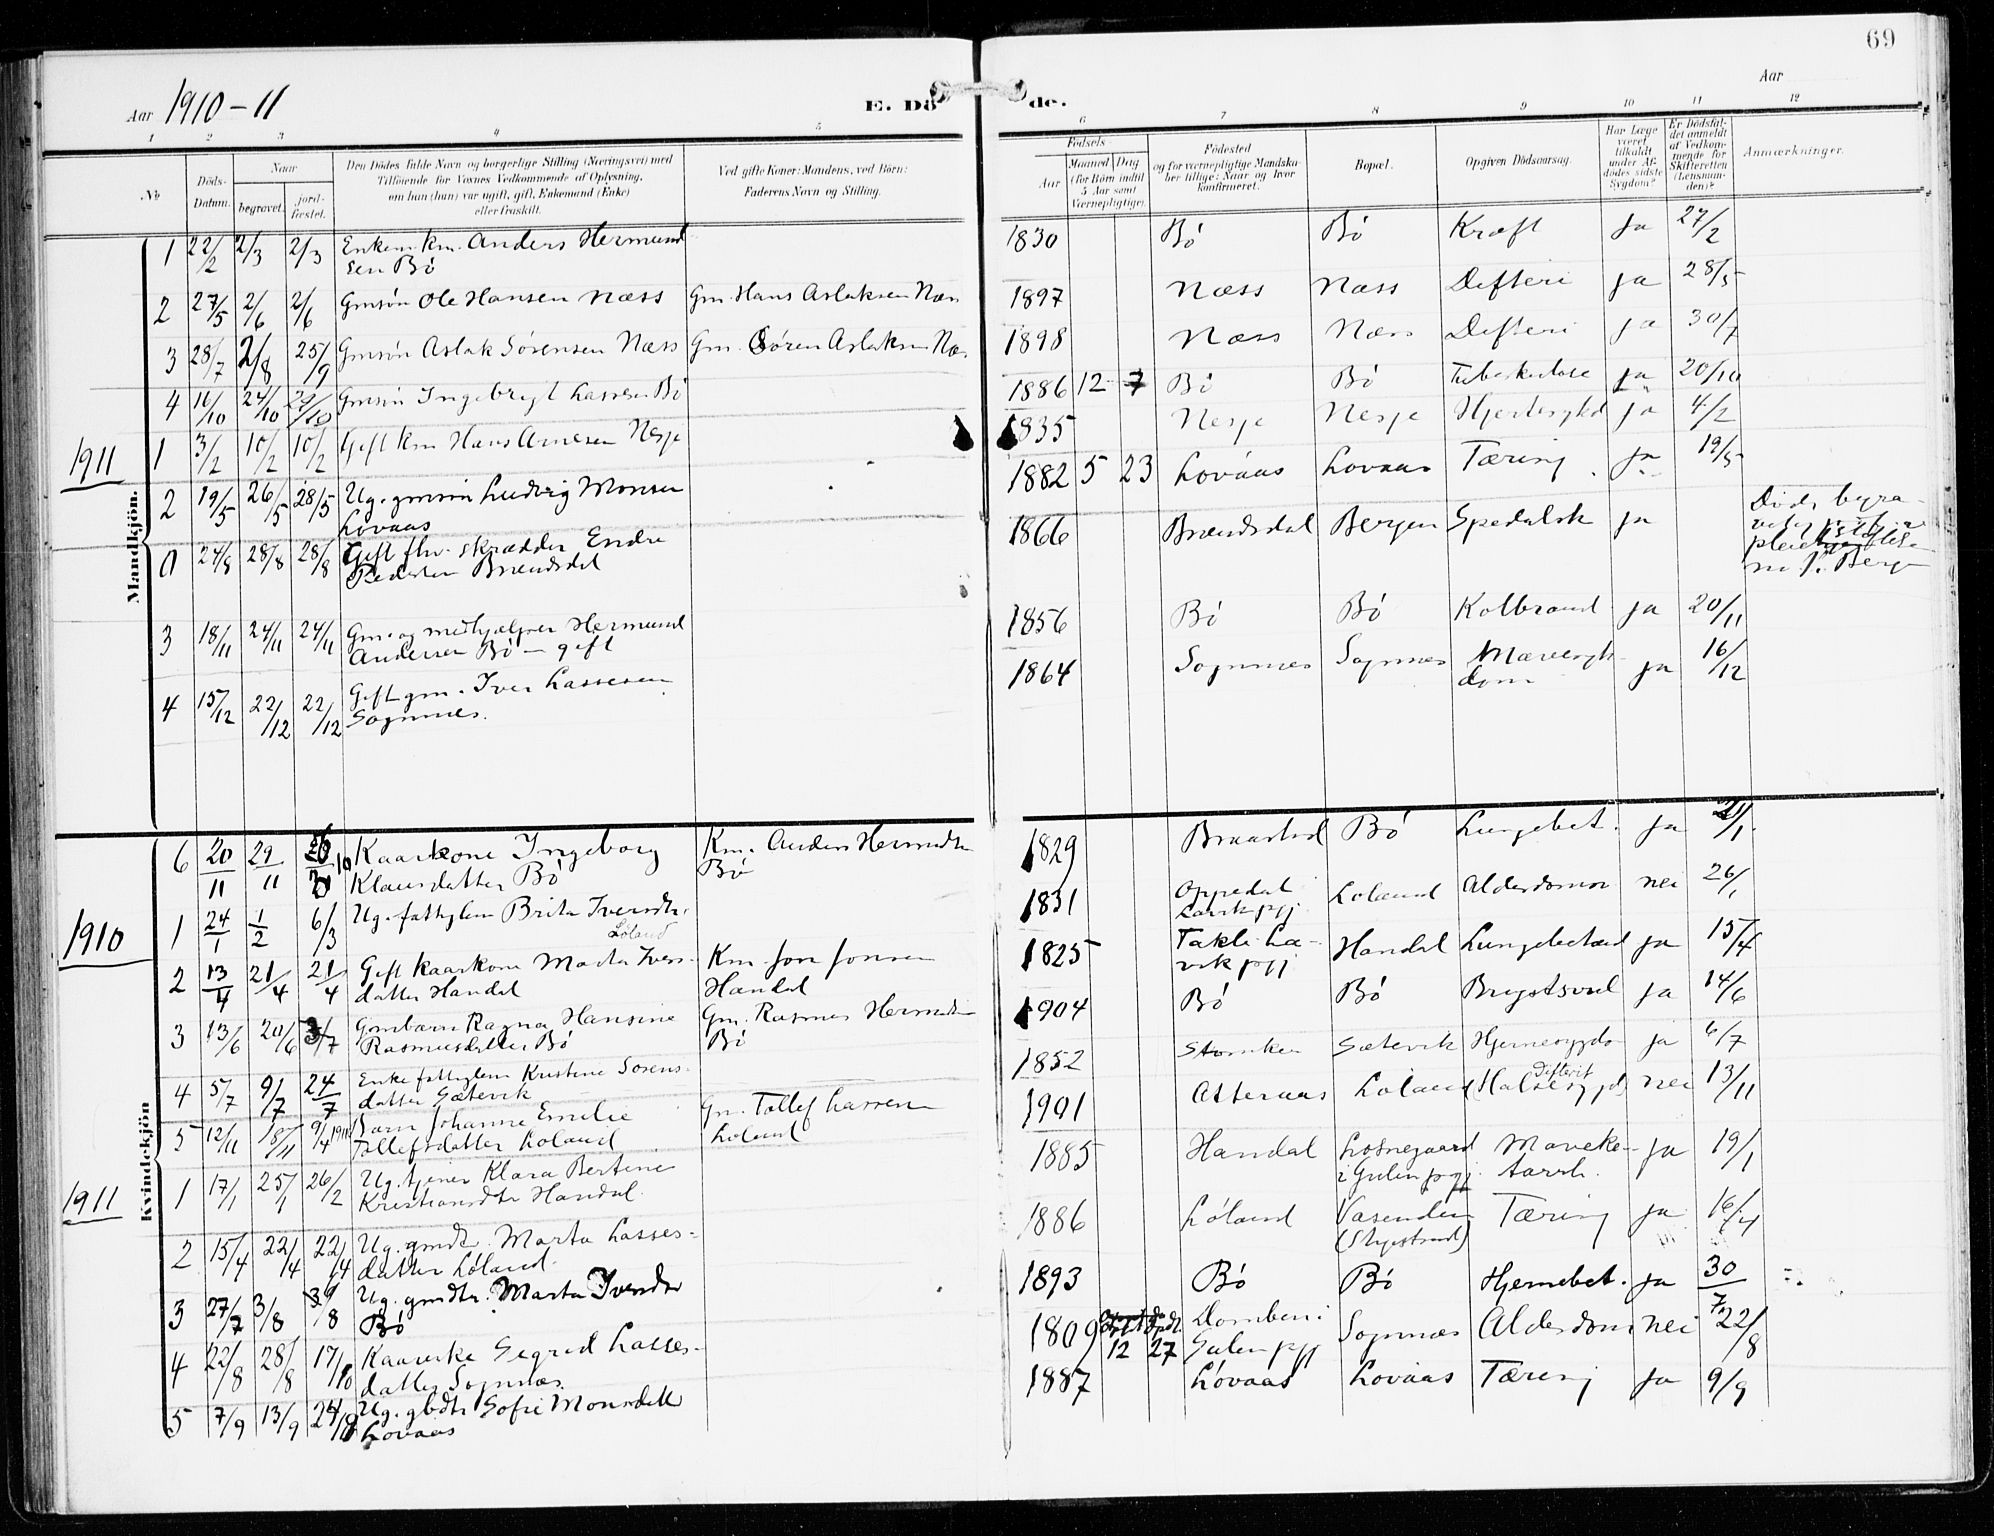 69
Aar 1910-11
E. Dö
de.
Aar
1 2 3 4 5 6 7 8 9 10 11 12
No
Döds-Datum.
Naar
begravet.
jord-fæstet.
Den Dödes fulde Navn og borgerlige Stilling (Næringsvei) med
Tilföiende for Voxnes Vedkommende af Oplysning,
om han (hun) var ugift, gift, Enkemand (Enke)
eller fraskilt.
Ved gifte Koner: Mandens, ved Börn:
Faderens Navn og Stilling.
Födsels
Aar
Maaned Dag
(for Börn indtil
5 Aar samt
Værnepligtige).
Födested
og for værnepligtige Mandska-
ber tillige: Naar og hvor
konfirmeret.
Bopæl.
Opgiven Dödsaarsag.
Har Læge
været
tilkaldt
under Af-
dödes sidste
Sygdom?
Er Dödsfal-
det anmeldt
af Vedkom-
mende for
Skifteretten
(Lensman-
den)?
Anmærkninger.
Mandkjön.
1 22/2 2/3 2/3 Enkem. km. Anders Hermund
sen Bö
1830 Bö Bö Kræft ja 27/2
2 27/5 2/6 2/6 Gmsøn Ole Hansen Næss Gm. Hans Aslaksen Næss
1897 Næss Næss Difteri ja 28/5
3 28/7 2/8 25/9 Gmsøn Aslak Sørensen Næss Gm. Sören Aslaksen Næss
1898 Næss Næss Difteri ja 30/7
4 16/10 24/10 24/10 Gmsøn Ingebrigt Lassesen Bö
1886 12 7 Bö Bö Tuberkulose ja 20/10
1911
1 3/2 10/2 10/2 Gift km Hans Arnesen Nesje
1835 Nesje Nesje Hjertesygd ja 4/2
2 19/5 26/5 28/5 Ug. gmsøn Ludvig Monsen
Lovaas
1882 5 23 Lovaas Lovaas Tæring ja 19/5
0 24/8 28/8 28/8 Gift fhv. skrædder Endre
Pedersen Brændsdal
1866 Brændsdal Bergen Spedalsk ja
Död, begra-
pleie
i Bergen
3 18/11 24/11 24/11 Gm. og medhjælper Hermund
Andersen Bö - gift
1856 Bö Bö Kolbrand ja 20/11
4 15/12 22/12 22/12 Gift gm. Iver Lassesen
Sognnes.
1864 Sognnes Sognnes Mavesyk-
dom ja 16/12
Kvindekjön
6 20/11 29/11 Kaarkone Ingeborg Km. Anders Hermundsen
Klausdatter Bö Bö
1829 Braastad Bö Lungebet. ja
1910
1 24/1 1/2 6/3 Ug. fattiglem Brita Iversdtr.
Löland
1831 Oppedal
Lavik pgj. Löland Alderdom nei 26/1
2 13/4 21/4 21/4 Gift kaarkone Marta Ivers- Km. Jon Jonsen
datter Handal Handal
1825 Takle La-
vik pgj Handal Lungebetænd ja 15/4
3 13/6 20/6 3/7 Gmbarn Ragna Hansine Gm. Rasmus Hermundsen
Rasmusdatter Bö Bö
1904 Bö Bö Brystsvul ja 14/6
4 5/7 9/7 24/7 Enke fattiglem Kristine Sørens-
datter Sætevik
1852 Sætevik Hjernesygdo ja 6/7
5 12/11 18/11 9/4 1911 Barn Johanne Emilie Gm. Tollef Lassesen
Tollefsdatter Löland Löland
1901 Atteraas Löland Difterit
Halssygd nei 13/11
1911
1 17/1 25/1 26/2 Ug. tjener Klara Bertine
Kristiansdtr Handal.
1885 Handal Losnegaard
i Gulen pgj. Maveka-
tarrh. ja 19/1
2 15/4 22/4 22/4 Ug. gmdtr. Marta Lasses-
datter Löland
1886 Löland Vasenden
Tæring ja 16/4
3 27/7 3/8 Ug. gmdtr. Marta Iversdtr
Bö
1893 Bö Bö Hjernebet. ja 30/7
4 22/8 28/8 17/10 Kaarenke Sigrid Lasses-
datter Sognnes.
1809 12 27 Dombeu i
Gulen pgj Sognnes Alderdom nei 22/8
5 7/9 13/9 Ug. gbdtr Sofie Monsdatt
Lovaas
1887 Lovaas Lovaas Tæring ja 9/9